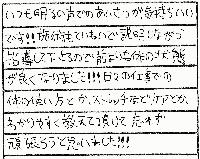 いつも明るい声でのあいさつが気持ちいい
です!!施術もていねいで説明しながら
指導して下さるので前よりも体の状態
が良くなりました!!!日々の仕事での
体の使い方とか、ストレッチなどケアとか、
わかりやすく教えて頂けて これからも
頑張ろうと思いました!!!